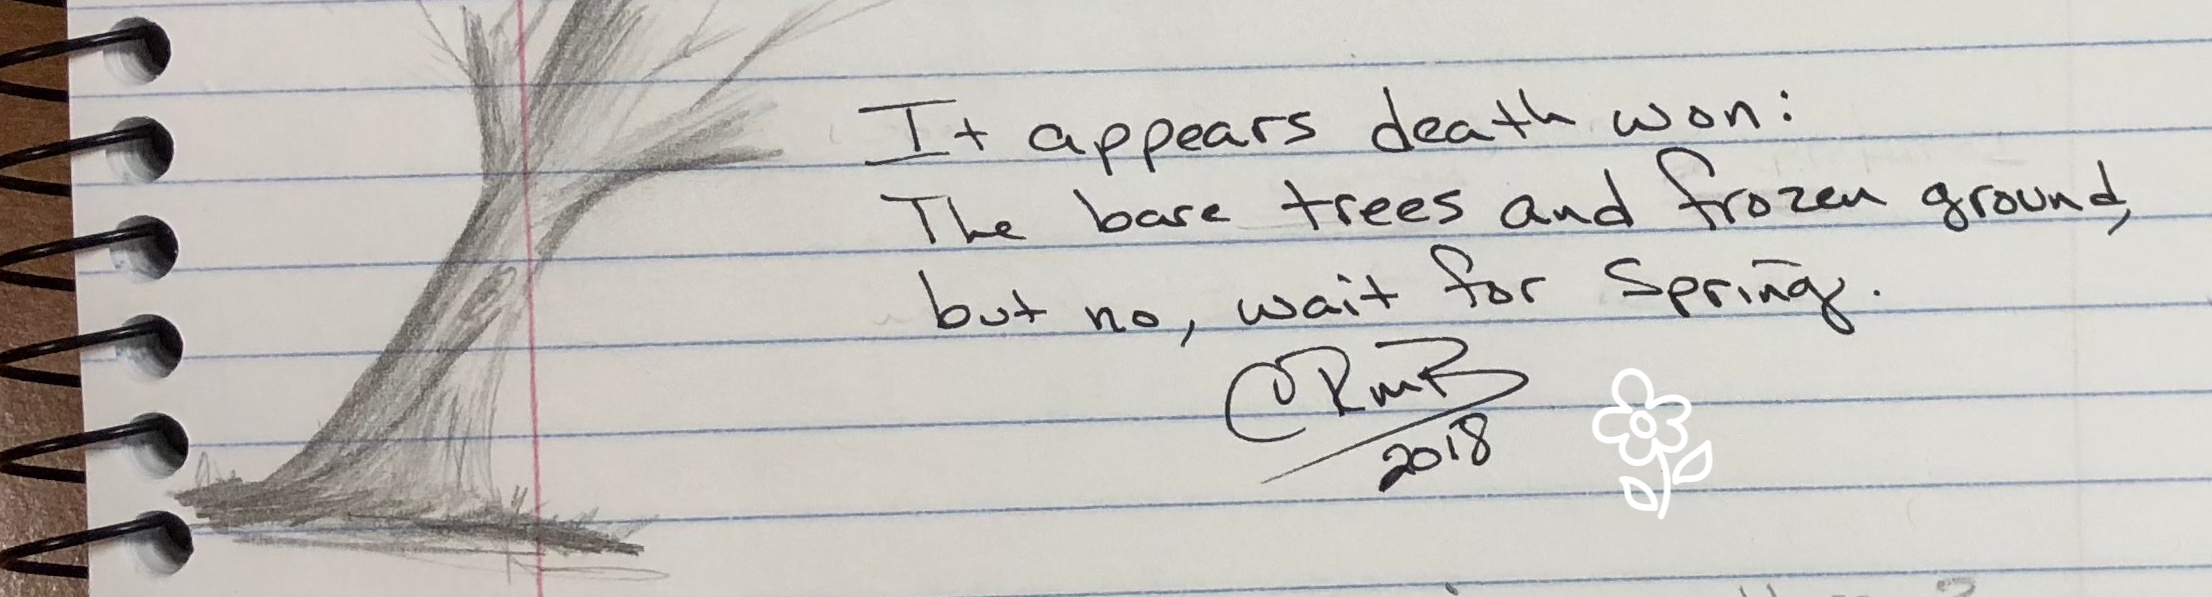 It appears death won:
The bare trees and frozen ground,
but no, wait for Spring.
©RmB
2018